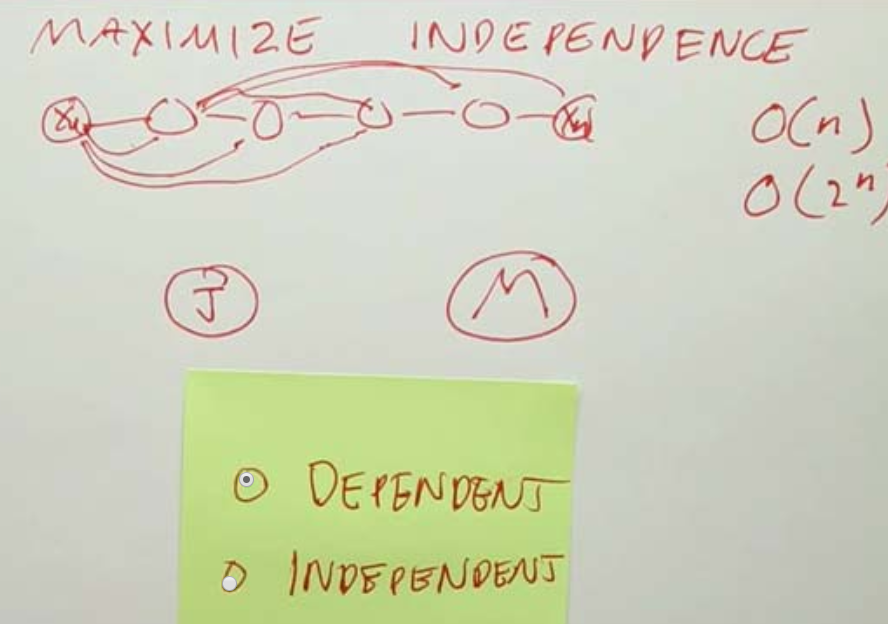 MAXIMIZE INDEPENDENCE
O(n)
O(2ⁿ)
J M
DEPENDENT
INDEPENDENT